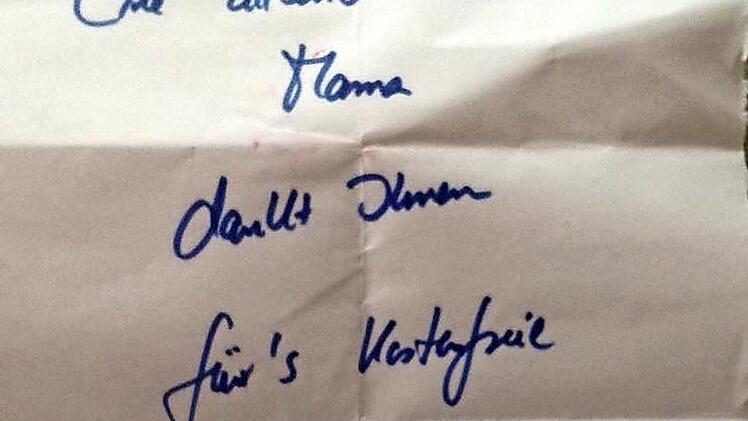 Eine
Mama
dankt Ihnen
für's Kostenfreie